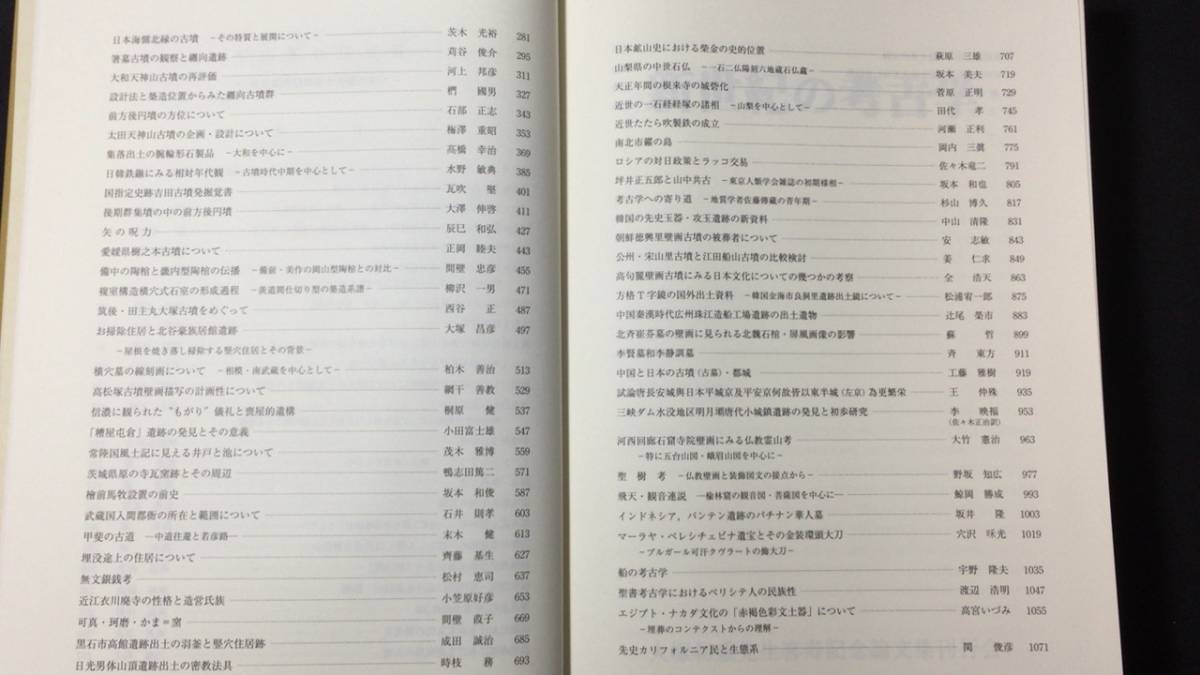 日本海側北縁の古墳 －その特質と展開について－ 茨木 光裕 281
箸墓古墳の観察と纒向遺跡 苅谷 俊介 295
大和天神山古墳の再評価 河上 邦彦 311
設計法と築造位置からみた纒向古墳群 椚 國男 327
前方後円墳の方位について 石部 正志 343
太田天神山古墳の企画・設計について 梅澤 重昭 353
集落出土の腕輪形石製品 －大和を中心に－ 高橋 幸治 369
日韓鉄鏃にみる相対年代観 －古墳時代中期を中心として－ 水野 敏典 385
国指定史跡吉田古墳発掘覚書 瓦吹 堅 401
後期群集墳の中の前方後円墳 大澤 伸啓 411
矢の呪力 辰巳 和弘 427
愛媛県樹之本古墳について 正岡 睦夫 443
備中の陶棺と畿内型陶棺の伝播 －備前・美作の岡山型陶棺との対比－ 間壁 忠彦 455
複室構造横穴式石室の形成過程 －羨道間仕切り型の築造系譜－ 柳沢 一男 471
筑後・田主丸大塚古墳をめぐって 西谷 正 487
お掃除住居と北谷豪族居館遺跡 大塚 昌彦 497
－屋根を焼き落し掃除する竪穴住居とその背景－
横穴墓の線刻画について －相模・南武蔵を中心として－ 柏木 善治 513
高松塚古墳壁画描写の計画性について 網干 善教 529
信濃に観られた“もがり”儀礼と喪屋的遺構 桐原 健 537
「糟屋屯倉」遺跡の発見とその意義 小田富士雄 547
常陸国風土記に見える井戸と池について 茂木 雅博 559
茨城県原の寺瓦窯跡とその周辺 鴨志田篤二 571
檜前馬牧設置の前史 坂本 和俊 587
武蔵国入間郡衙の所在と範囲について 石井 則孝 603
甲斐の古道 ―中道往還と若彦路― 末木 健 613
埋没途上の住居について 齊藤 基生 627
無文銀銭考 松村 恵司 637
近江衣川廃寺の性格と造営氏族 小笠原好彦 653
可真・珂磨・かま＝窯 間壁 葭子 669
黒石市高館遺跡出土の羽釜と竪穴住居跡 成田 誠治 685
日光男体山頂遺跡出土の密教法具 時枝 務 693
日本鉱山史における柴金の史的位置 萩原 三雄 707
山梨県の中世石仏 ―一石二仏陽刻六地蔵石仏龕― 坂本 美夫 719
天正年間の根来寺の城砦化 菅原 正明 729
近世の一石経経塚の諸相 －山梨を中心として－ 田代 孝 745
近世たたら吹製鉄の成立 河瀬 正利 761
南北市糴の島 岡内 三眞 775
ロシアの対日政策とラッコ交易 佐々木竜二 791
坪井正五郎と山中共古 －東京人類学会雑誌の初期様相－ 坂本 和也 805
考古学への寄り道 －地質学者佐藤傳蔵の青年期－ 杉山 博久 817
韓国の先史玉器・攻玉遺跡の新資料 中山 清隆 831
朝鮮徳興里壁画古墳の被葬者について 安 志敏 843
公州・宋山里古墳と江田船山古墳の比較検討 姜 仁求 849
高句麗壁画古墳にみる日本文化についての幾つかの考察 全 浩天 863
方格Ｔ字鏡の国外出土資料 －韓国金海市良洞里遺跡出土鏡について－ 松浦宥一郎 875
中国秦漢時代広州珠江造船工場遺跡の出土遺物 辻尾 榮市 883
北斉崔芬墓の壁画に見られる北魏石棺・屏風画像の影響 蘇 哲 899
李賢墓和李静訓墓 斉 東方 911
中国と日本の古墳（古墓）・都城 工藤 雅樹 919
試論唐長安城與日本平城京及平安京何故皆以東半城（左京）為更繁栄 王 仲殊 935
三峡ダム水没地区明月壩唐代小城鎮遺跡の発見と初歩研究 李 映福 953
（佐々木正治訳）
河西回廊石窟寺院壁画にみる仏教霊山考 大竹 憲治 963
－特に五台山図・峨眉山図を中心に－
聖樹考 －仏教壁画と装飾図文の接点から－ 野坂 知広 977
飛天・観音連説 ―楡林窟の観音図・菩薩図を中心に― 鯨岡 勝成 993
インドネシア，バンテン遺跡のパチナン華人墓 坂井 隆 1003
マーラヤ・ペレシチェピナ遺宝とその金装環頭大刀 穴沢 咊光 1019
－ブルガール可汗クヴラートの飾大刀－
船の考古学 宇野 隆夫 1035
聖書考古学におけるペリシテ人の民族性 渡辺 浩明 1047
エジプト・ナカダ文化の「赤褐色彩文土器」について 高宮いづみ 1055
－埋葬のコンテクストからの理解－
先史カリフォルニア民と生態系 関 俊彦 1071